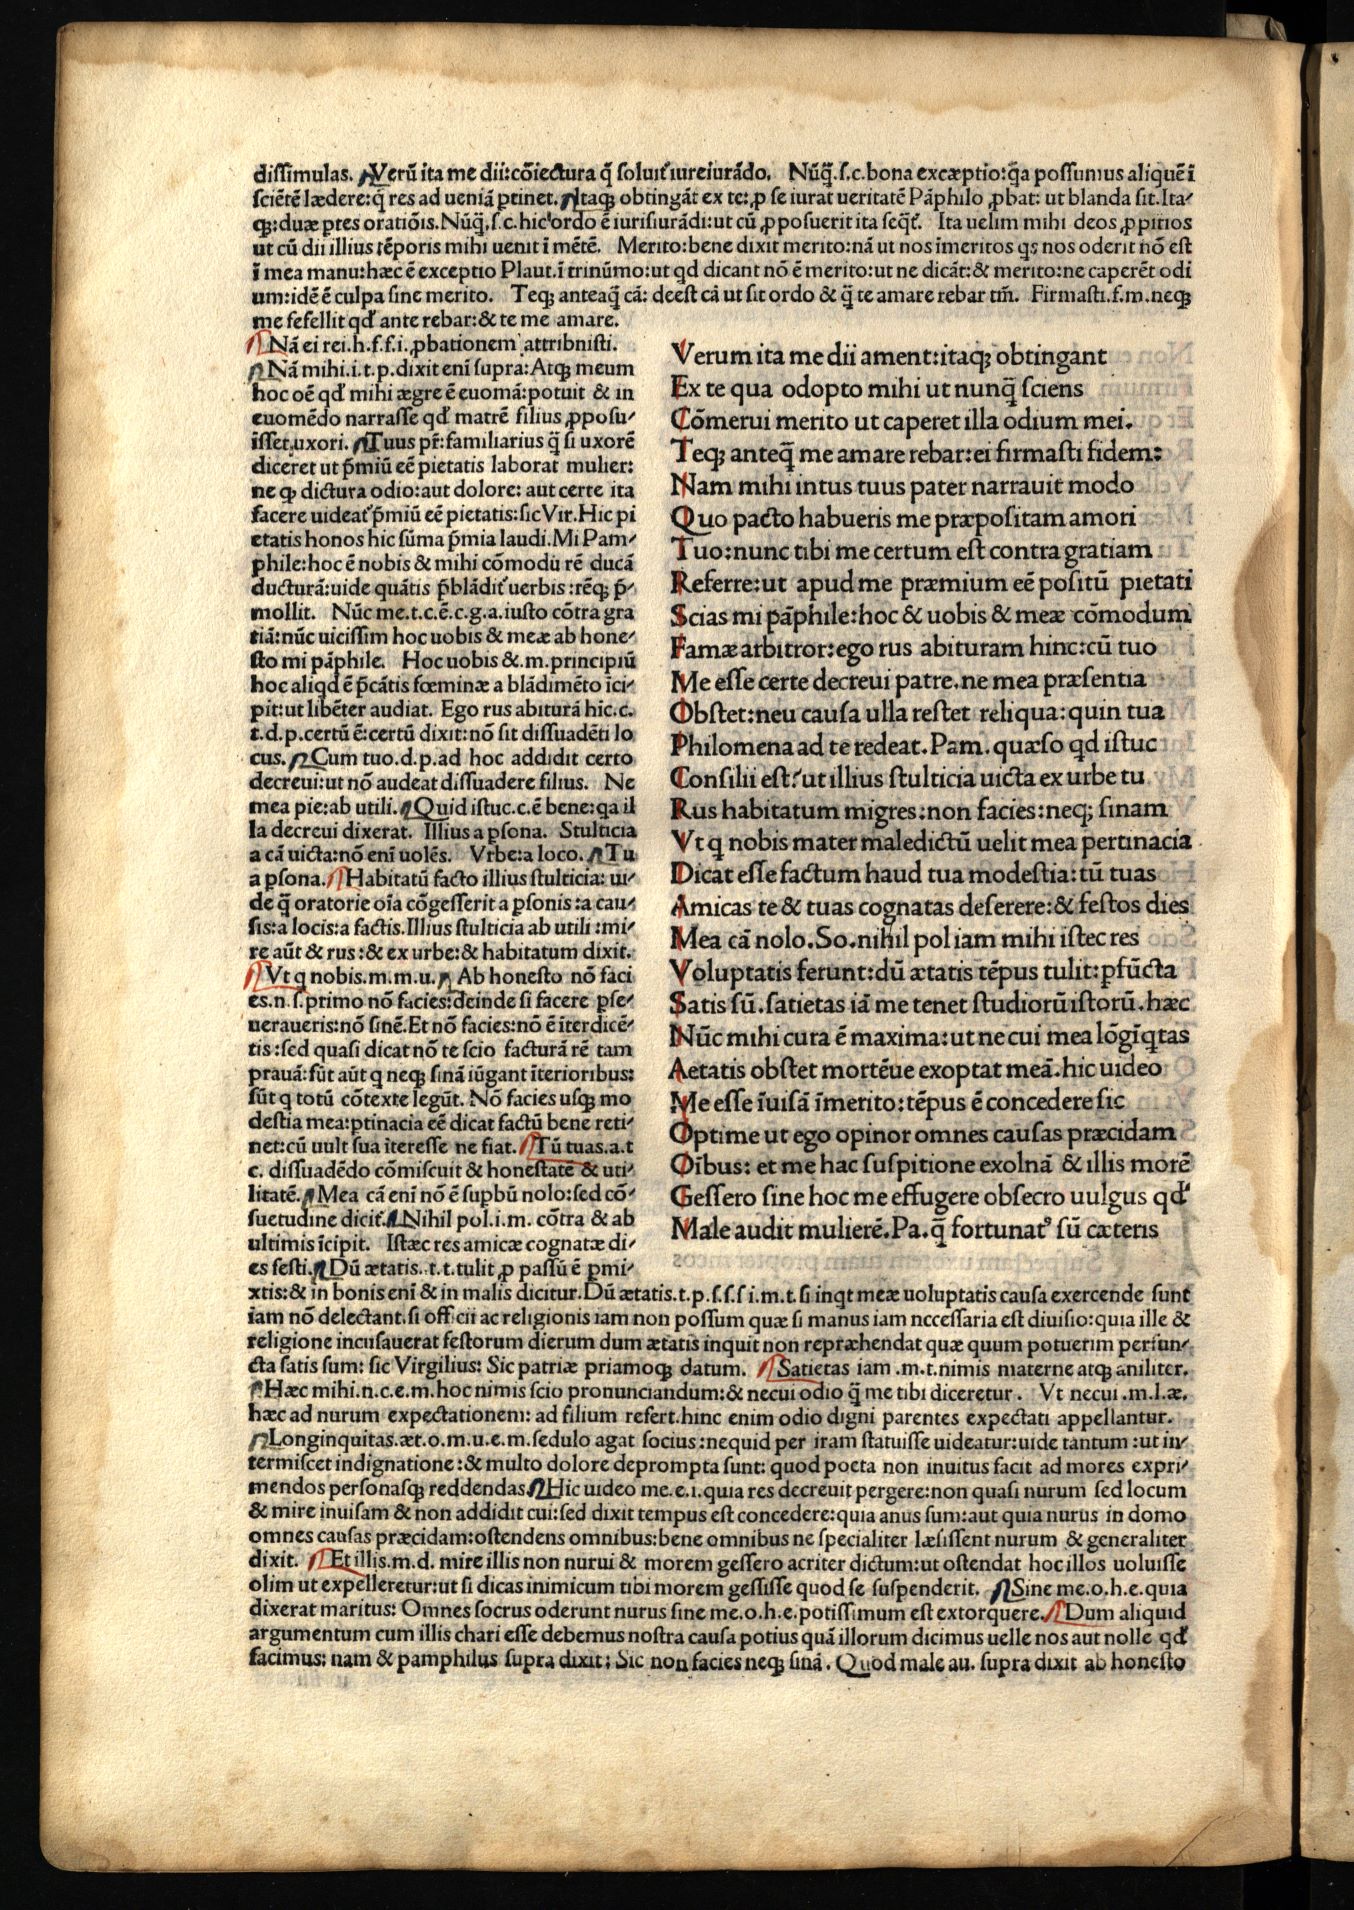 dissimulas. ¶Verũ ita me dii:cõiectura q̃ soluit̃ iureiurãdo. Nũq̃.s.c.bona excæptio:q̃a possumus aliquẽ ĩ
sciẽtẽ lædere:q̃ res ad ueniã ꝑtinet.¶Itaqꝫ obtingãt ex te:ꝓ se iurat ueritatẽ Pãphilo ꝓbat: ut blanda sit.Ita⸗
qꝫ:duæ ꝑtes oratiõis.Nũq̃.s.c.hic ordo ẽ iurisiurãdi:ut cũ ꝓposuerit ita seqt̃. Ita uelim mihi deos ꝓpitios
ut cũ dii illius tẽporis mihi uenit ĩ mẽtẽ. Merito:bene dixit merito:nã ut nos ĩmeritos qs nos oderit nõ est
ĩ mea manu:hæc ẽ exceptio Plaut.ĩ trinũmo:ut qd dicant nõ ẽ merito:ut ne dicãt:& merito:ne caperẽt odi
um:idẽ ẽ culpa sine merito. Teqꝫ anteaq̃ cã: deest cã ut sit ordo & q̃ te amare rebar tm̃. Firmasti.f.m.neqꝫ
me fefellit qđ ante rebar:& te me amare.
¶Nã ei rei.h.f.f.i.ꝓbationem attribnisti.
¶Nã mihi.i.t.p.dixit eni͂ supra:Atqꝫ meum
hoc oẽ qđ mihi ægre ẽ euomã:potuit & in
euomẽdo narrasse qđ matrẽ filius ꝓposu⸗
isset uxori. ¶Tuus pr̃:familiarius q̃ si uxorẽ
diceret ut p̃miũ eẽ pietatis laborat mulier:
ne qꝫ dictura odio:aut dolore: aut certe ita
facere uideat̃ p̃miũ eẽ pietatis:sic Vir.Hic pi
etatis honos hic sũma p̃mia laudi.Mi Pam⸗
phile:hoc ẽ nobis & mihi cõmodũ rẽ ducã
ducturã:uide quãtis p̃blãdit̃ uerbis :rẽqꝫ p̃⸗
mollit. Nũc me.t.c.ẽ.c.g.a.iusto cõtra gra
tiã:nũc uicissim hoc uobis & meæ ab hone⸗
sto mi pãphile. Hoc uobis &.m.principiũ
hoc aliqd ẽ p̃cãtis fœminæ a blãdimẽto ĩci⸗
pit:ut libẽter audiat. Ego rus abiturã hic.c.
t.d.p.certũ ẽ:certũ dixit:nõ sit dissuadẽti lo
cus. ¶Cum tuo.d.p.ad hoc addidit certo
decreui:ut nõ audeat dissuadere filius. Ne
mea pie:ab utili.¶Quid istuc.c.ẽ bene:qa il
la decreui dixerat. Illius a ꝑsona. Stulticia
a cã uicta:nõ eni͂ uolẽs. Vrbe:a loco. ¶Tu
a ꝑsona.¶Habitatũ facto illius stulticia: ui⸗
de q̃ oratorie oĩa cõgesserit a ꝑsonis :a cau⸗
sis:a locis:a factis.Illius stulticia ab utili :mi⸗
re aũt & rus :& ex urbe:& habitatum dixit.
¶Vt q nobis.m.m.u.¶Ab honesto nõ faci
es.n s.primo nõ facies:deinde si facere ꝑse⸗
ueraueris:nõ sinẽ.Et nõ facies:nõ ẽ ĩterdicẽ⸗
tis :sed quasi dicat nõ te scio facturã rẽ tam
prauã:sũt aũt q neqꝫ sinã iũgant ĩterioribus:
sũt q totũ cõtexte legũt. Nõ facies usqꝫ mo
destia mea:ꝑtinacia eẽ dicat factũ bene reti⸗
net:cũ uult sua ĩteresse ne fiat.¶Tũ tuas.a.t
c. dissuadẽdo cõmiscuit & honestatẽ & uti⸗
litatẽ.¶Mea cã eni͂ nõ ẽ supbũ nolo:sed cõ⸗
suetudine dicit̃.¶Nihil pol.i.m. cõtra & ab
ultimis ĩcipit. Istæc res amicæ cognatæ di⸗
es festi.¶Dũ ætatis..t.t.tulit ꝓ passũ ẽ ꝑmi⸗
Verum ita me dii ament:itaqꝫ obtingant
Ex te qua odopto mihi ut nunq̃ sciens
Cõmerui merito ut caperet illa odium mei.
Teqꝫ anteq̃ me amare rebar:ei firmasti fidem:
Nam mihi intus tuus pater narrauit modo
Quo pacto habueris me præpositam amori
Tuo:nunc tibi me certum est contra gratiam
Referre:ut apud me præmium eẽ positũ pietati
Scias mi pãphile:hoc & uobis & meæ cõmodum
Famæ arbitror:ego rus abituram hinc:cũ tuo
Me esse certe decreui patre.ne mea præsentia
Obstet:neu causa ulla restet reliqua:quin tua
Philomena ad te redeat.Pam.quæso qd istuc
Consilii est?ut illius stulticia uicta ex urbe tu
Rus habitatum migres:non facies:neqꝫ sinam
Vt q nobis mater maledictũ uelit mea pertinacia
Dicat esse factum haud tua modestia:tũ tuas
Amicas te & tuas cognatas deserere:& festos dies
Mea cã nolo.So.nihil pol iam mihi istec res
Voluptatis ferunt:dũ ætatis tẽpus tulit:ꝑfũcta
Satis sũ.satietas iã me tenet studiorũ istorũ.hæc
Nũc mihi cura ẽ maxima:ut ne cui mea lõgĩqtas
Aetatis obstet mortẽue exoptat meã.hic uideo
Me esse ĩuisã ĩmerito:tẽpus ẽ concedere sic
Optime ut ego opinor omnes causas præcidam
Oĩbus: et me hac suspitione exolnã & illis morẽ
Gessero sine hoc me effugere obsecro uulgus qđ
Male audit mulierẽ.Pa.q̃ fortunatꝰ sũ cæteris
xtis:& in bonis eni͂ & in malis dicitur.Dũ ætatis.t.p.s.s.s i.m.t.si inqt meæ uoluptatis causa exercende sunt
iam nõ delectant.si officii ac religionis iam non possum quæ si manus iam nccessaria est diuisio:quia ille &
religione incusauerat festorum dierum dum ætatis inquit non repræhendat quæ quum potuerim perfun⸗
cta satis sum: sic Virgilius: Sic patriæ priamoqꝫ datum. ¶Satietas iam .m.t.nimis materne atqꝫ aniliter.
¶Hæc mihi.n.c.e.m.hoc nimis scio pronunciandum:& necui odio q̃ me tibi diceretur. Vt necui .m.l.æ.
hæc ad nurum expectationem: ad filium refert.hinc enim odio digni parentes expectati appellantur.
¶Longinquitas.æt.o.m.u.e.m.sedulo agat socius:nequid per iram statuisse uideatur:uide tantum :ut in⸗
termiscet indignatione:& multo dolore deprompta sunt: quod poeta non inuitus facit ad mores expri⸗
mendos personasqꝫ reddendas.¶Hic uideo me.e.i.quia res decreuit pergere:non quasi nurum sed locum
& mire inuisam & non addidit cui:sed dixit tempus est concedere:quia anus sum:aut quia nurus in domo
omnes causas præcidam:ostendens omnibus:bene omnibus ne specialiter læsissent nurum & generaliter
dixit. ¶Et illis.m.d. mire illis non nurui & morem gessero acriter dictum:ut ostendat hoc illos uoluisse
olim ut expelleretur:ut si dicas inimicum tibi morem gessisse quod se suspenderit. ¶Sine me.o.h.e.quia
dixerat maritus: Omnes socrus oderunt nurus sine me.o.h.e.potissimum est extorquere.¶Dum aliquid
argumentum cum illis chari esse debemus nostra causa potius quã illorum dicimus uelle nos aut nolle qđ
facimus: nam & pamphilus supra dixit: Sic non facies neqꝫ sinã. Quod male au. supra dixit ab honesto